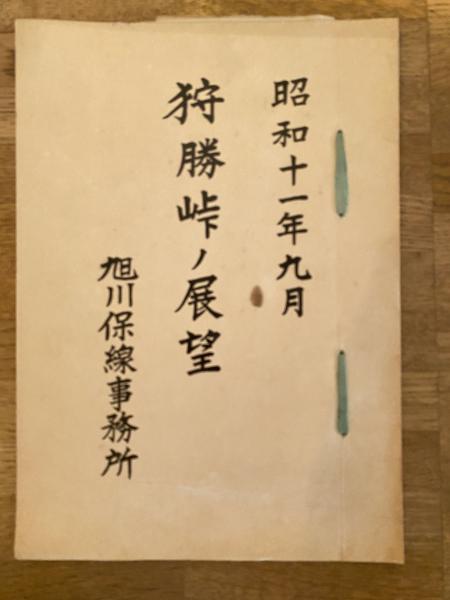 昭和十一年九月
狩勝峠ノ展望
旭川保線事務所